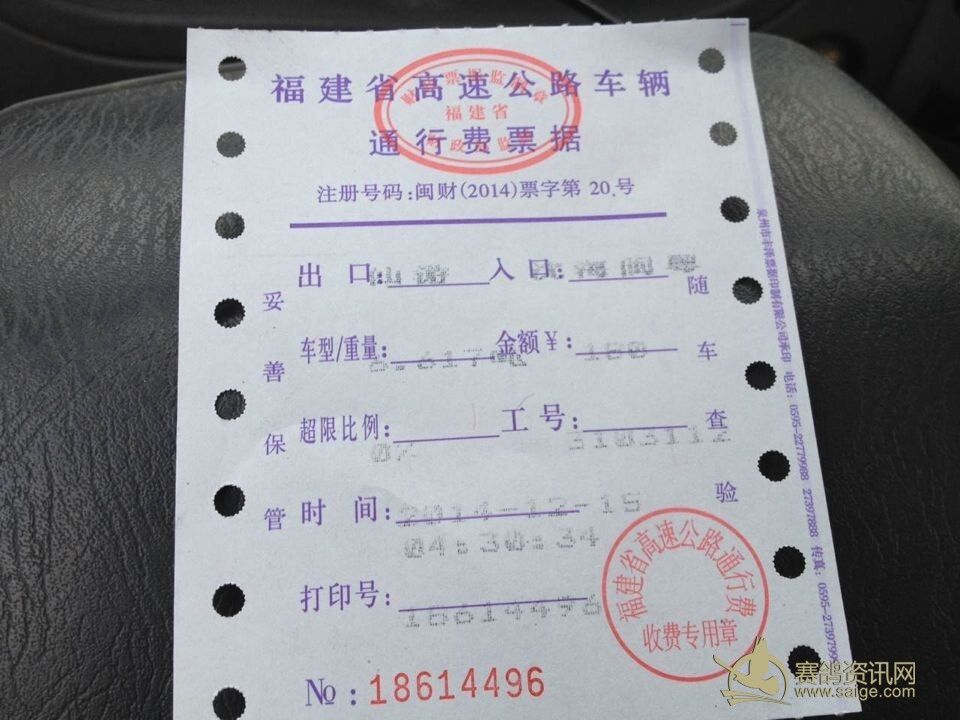 福建省高速公路车辆
通行费票据
福建省
注册号码:闽财(2014)票字第 20.号
出口: 入口:
车型/重量: 金额¥: 180
超限比例: 0% 工号: 3103112
时间: 2014-12-15
04:30:34
打印号: 18614496
№:18614496
妥善保管
随车查验
福建省高速公路通行费
收费专用章
泉州市丰泽票据印制有限公司承印 电话: 0595-22779988 27397888 传真: 0595-
赛鸽资讯网
www.saige.com